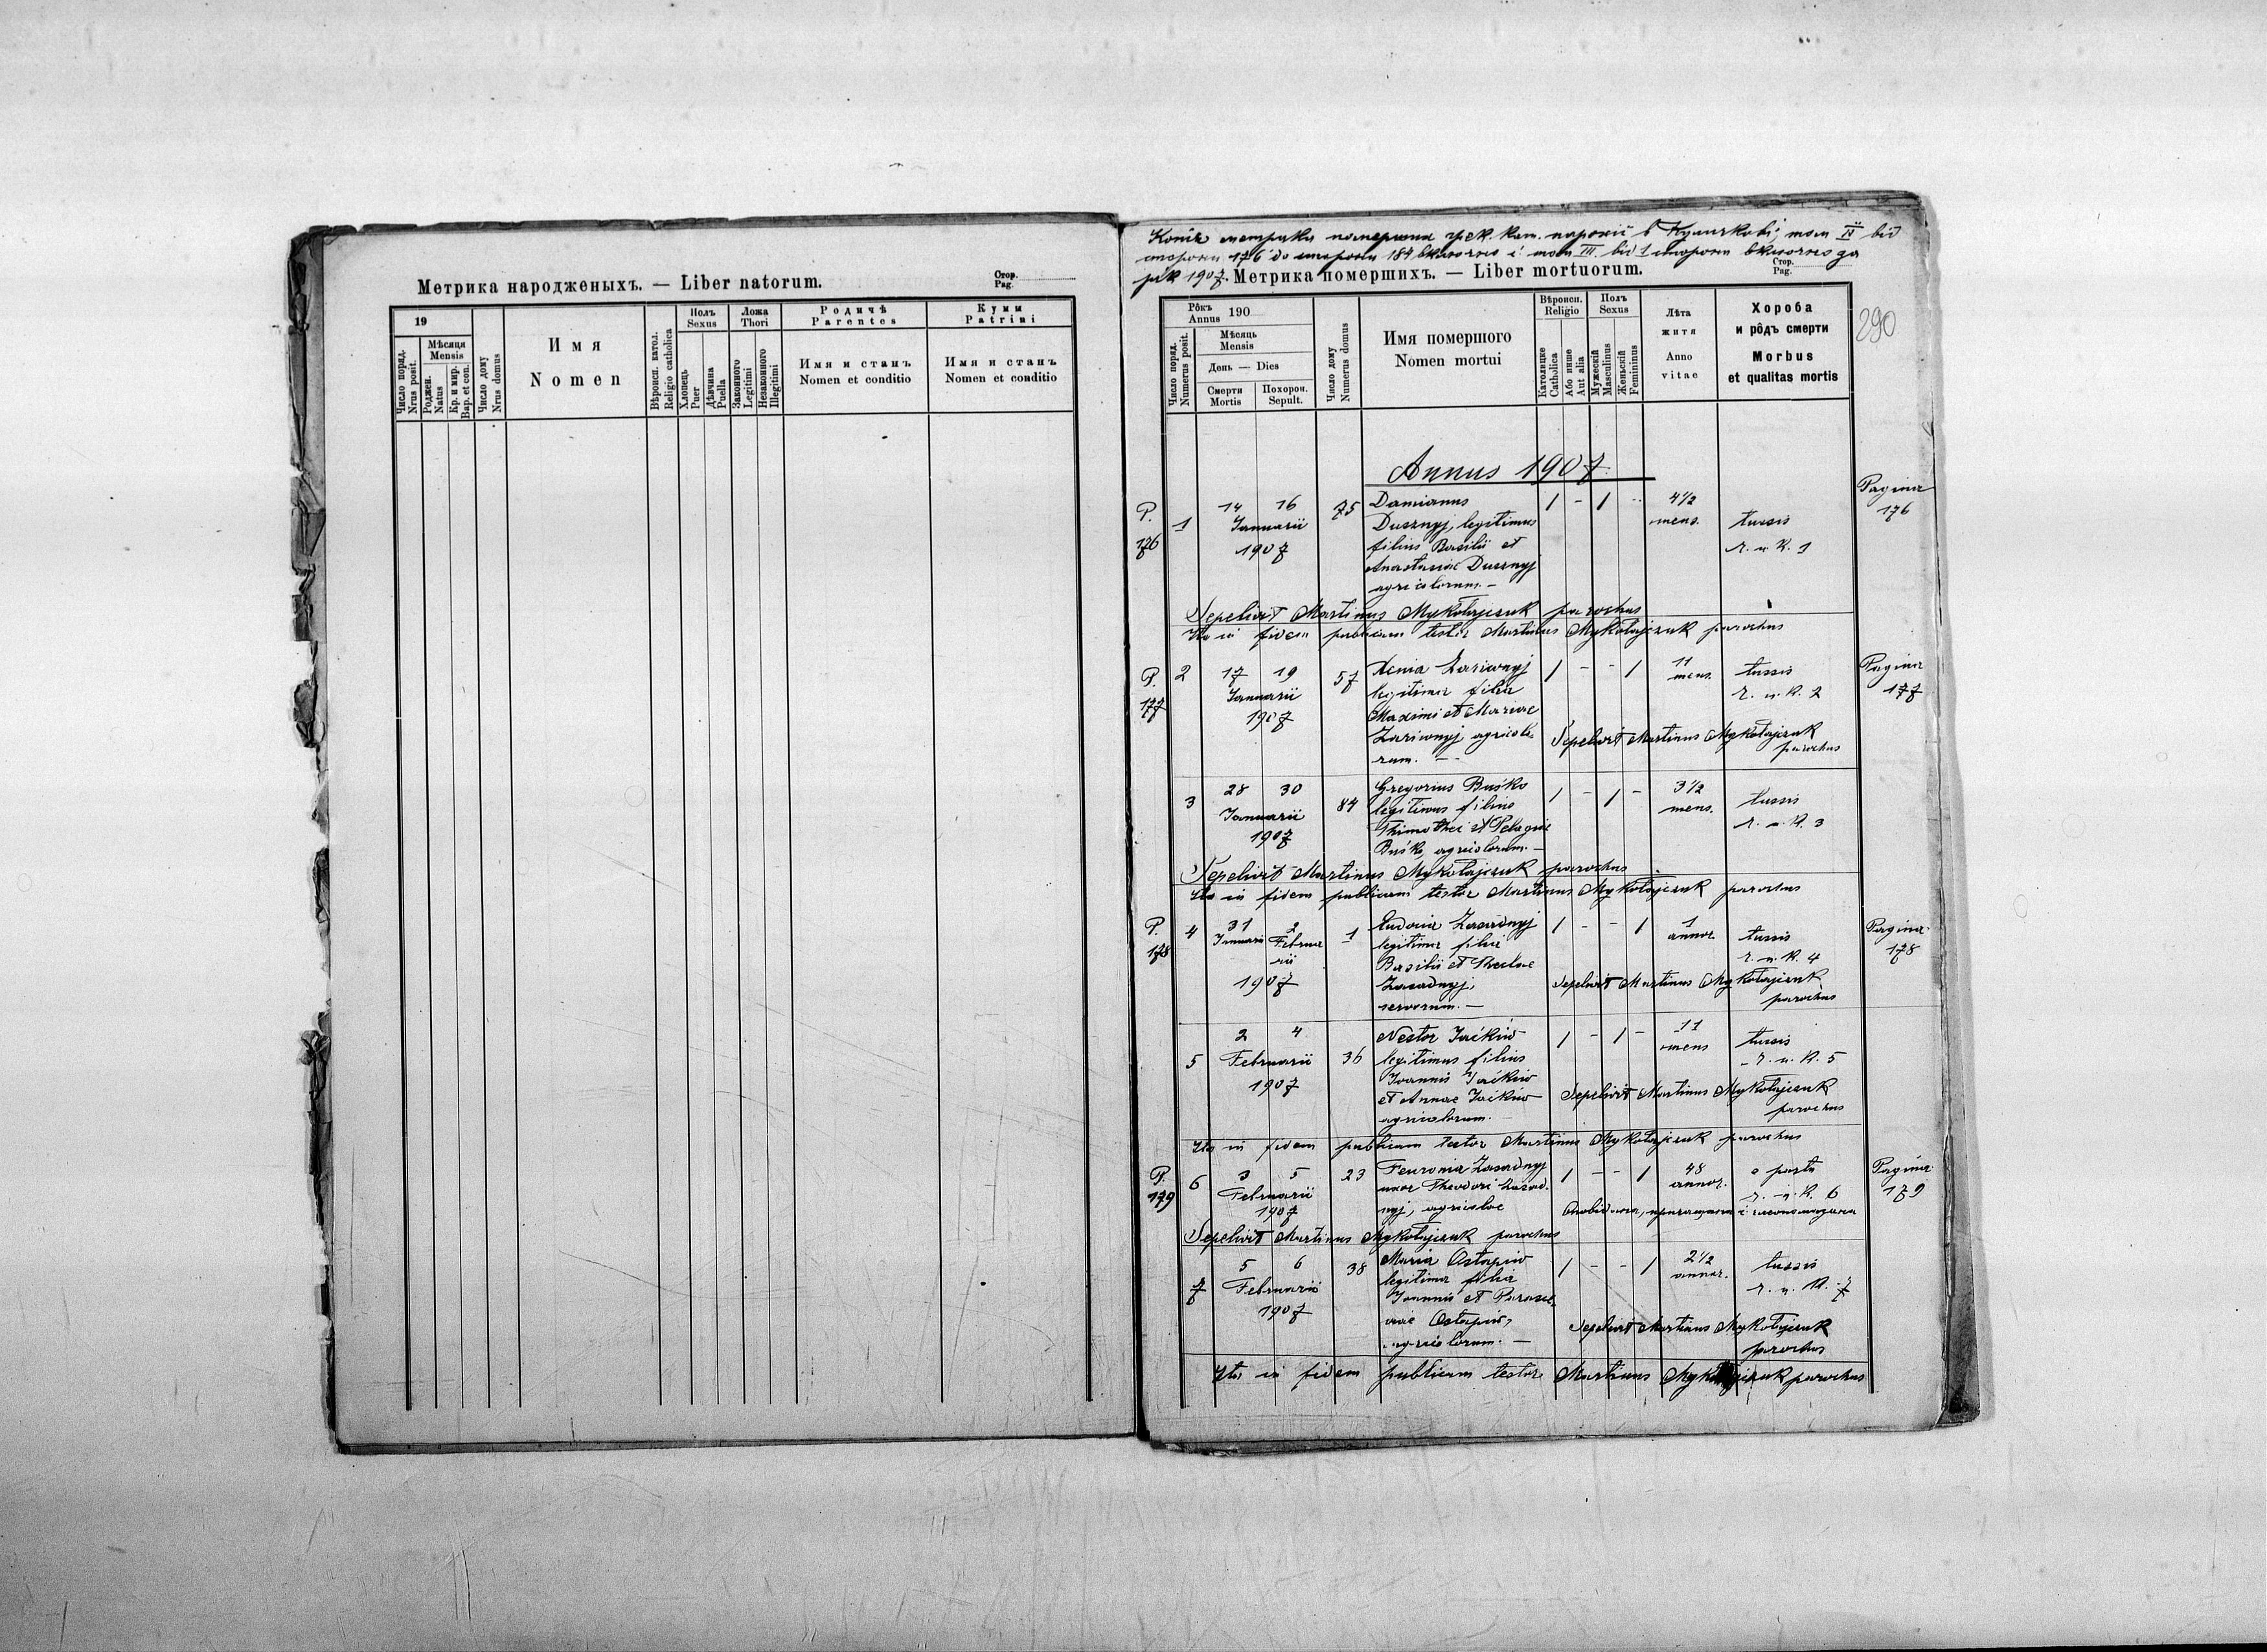 Метрика народженыхъ. — Liber natorum.
Стор.
Pag.
19
Число поряд.
Nrus posit.
Мѣсяця
Mensis
Роджен.
Natus
Кр. и мир.
Bap. et con.
Число дому
Nrus domus
Имя
Nomen
Вѣроисп. катол.
Religio catholica
Полъ
Sexus
Хлопець
Puer
Дѣвчина
Puella
Ложа
Thori
Законного
Legitimi
Незаконного
Illegitimi
Родичѣ
Parentes
Имя и станъ
Nomen et conditio
Кумы
Patrini
Имя и станъ
Nomen et conditio
Копія метрики померших грек. кат. парохії в том IV від
сторони 176 до сторони 184 включно і том III від 1 сторони включно за
рік 1907. Метрика помершихъ. — Liber mortuorum.
Стор.
Pag.
290
Рôкъ
Annus 190
Число поряд.
Numerus posit.
Мѣсяць
Mensis
День — Dies
Смерти
Mortis
Похорон.
Sepult.
Число дому
Numerus domus
Имя помершого
Nomen mortui
Вѣроисп.
Religio
Католицке
Catholica
Або инше
Aut alia
Полъ
Sexus
Мужескій
Masculinus
Женьскій
Femininus
Лѣта
житя
Anno
vitae
Хороба
и рôдъ смерти
Morbus
et qualitas mortis
Annus 1907.
P.
176
1
14 16
Januarii
1907
75
Damianus
Dusznyj, legitimus
filius Basilii et
Anastasiae Dusznyj
agricolarum. —
1 - 1 -
4 1/2
mens.
tussis
r. n. k. 1
Pagina
176
Sepelivit Martinus Mykołajczuk parochus
Ita in fidem publicam testor Martinus Mykołajczuk parochus
P.
177
2
17 19
Januarii
1907
57
Xenia Zariwnyj
legitima filia
Maximi et Mariae
Zariwnyj agricola-
rum. —
1 - - 1
11
mens.
tussis
r. n. k. 2
Sepelivit Martinus Mykołajczuk
parochus
Pagina
177
3
28 30
Januarii
1907
84
Gregorius Buśko
legitimus filius
Thimothei et Pelagiae
Buśko, agricolarum. —
1 - 1 -
3 1/2
mens.
tussis
r. n. k. 3
Sepelivit Martinus Mykołajczuk parochus
Ita in fidem publicam testor Martinus Mykołajczuk parochus
P.
178
4
31 2
Januarii Februa
rii
1907
1
Eudocia Zasadnyj
legitima filia
Basilii et Theclae
Zasadnyj,
servorum. —
1 - - 1
1
annor.
tussis
r. n. k. 4
Sepelivit Martinus Mykołajczuk
parochus
Pagina
178
5
2 4
Februarii
1907
36
Nestor Jaćkiw
legitimus filius
Joannis Jaćkiw
et Annae Jaćkiw
agricolarum. —
1 - 1 -
11
mens
tussis
r. n. k. 5
Sepelivit Martinus Mykołajczuk
parochus
Ita in fidem publicam testor Martinus Mykołajczuk parochus
P.
179
6
3 5
Februarii
1907
23
Feuronia Zasadnyj
uxor Theodori Zasad-
nyj, agricolae
1 - - 1
48
annor.
a partu
r. n. k. 6
Pagina
179
Sepelivit Martinus Mykołajczuk parochus
7
5 6
Februarii
1907
38
Maria Ostapiw
legitima filia
Joannis et Parasce-
viae Ostapiw,
agricolarum. —
1 - - 1
2 1/2
annor.
tussis
r. n. k. 7
Sepelivit Martinus Mykołajczuk
parochus
Ita in fidem publicam testor Martinus Mykołajczuk parochus